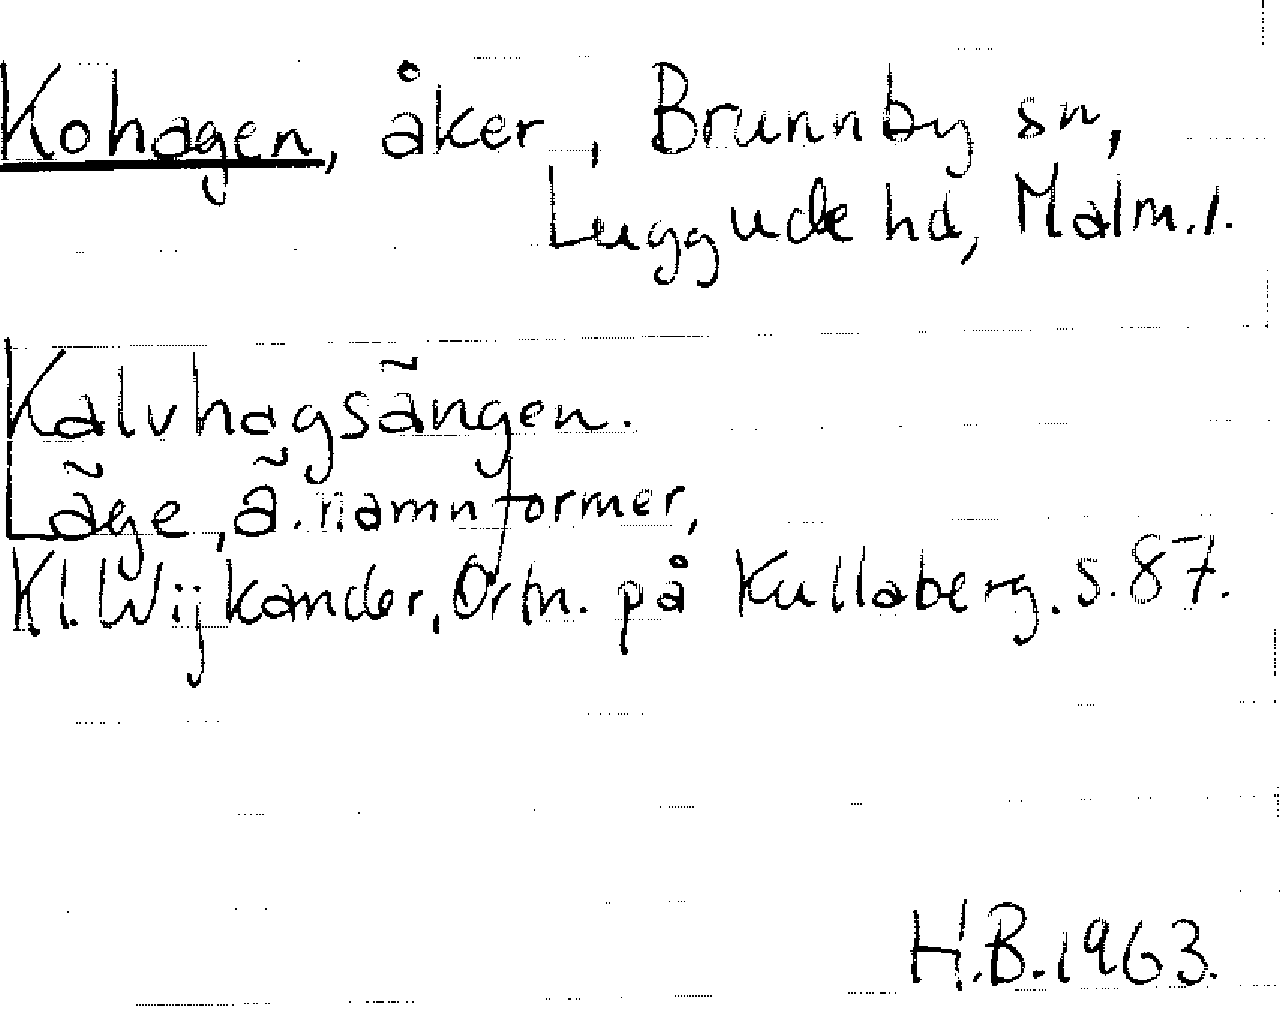 Kohagen, åker, Brunnby sn,
Luggude hd, Malm.l.
Kalvhagsängen.
Läge, ä. namnformer,
Kl. Wijkander, Ortn. på Kullaberg. S. 87.
H.B. 1963.